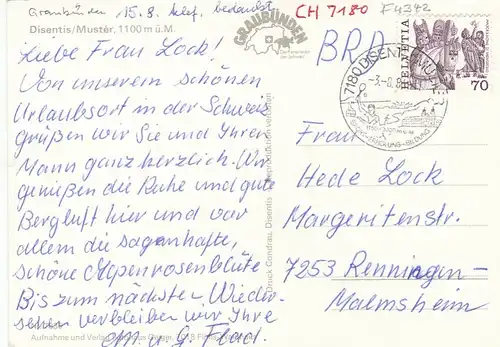 Graubünden 15.8. telef. bedankt
CH 7180
F4342
Disentis/Mustér, 1100 m ü.M.
GRAUBÜNDEN
HELVETIA
70
7180 DISENTIS/MUSTÉR
Liebe Frau Lock!
Von unserem schönen
Urlaubsort in der Schweiz
grüßen wir Sie und Ihren
Mann ganz herzlich. Wir
genießen die Ruhe und gute
Bergluft hier und vor
allem die sagenhafte,
schöne Alpenrosenblüte.
Bis zum nächsten Wieder-
sehen verbleiben wir Ihre
M. u. G. Flad.
Aufnahme und Verlag
Druck Condrau, Disentis
Reproduktion verboten
BRD
Frau
Hede Lock
Margeritenstr.
7253 Renningen-
Malmsheim